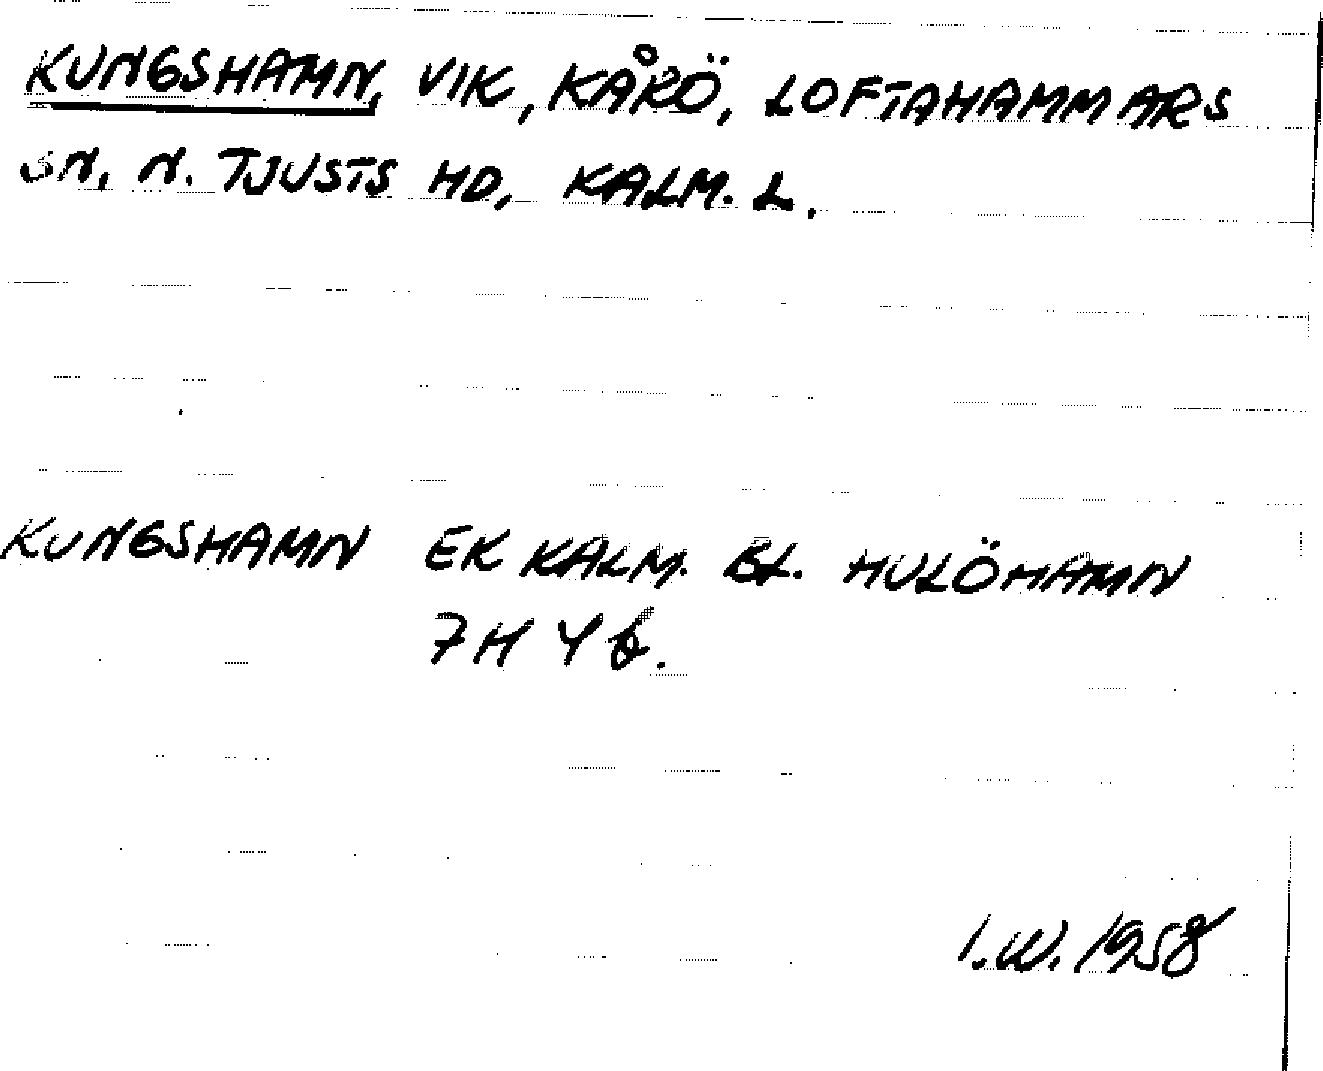 KUNGSHAMN, VIK, KÅRÖ, LOFTAHAMMARS
SN, N. TJUSTS HD, KALM. L.
KUNGSHAMN EK KALM. BL. HULÖHAMN
7H
I.W. 1958